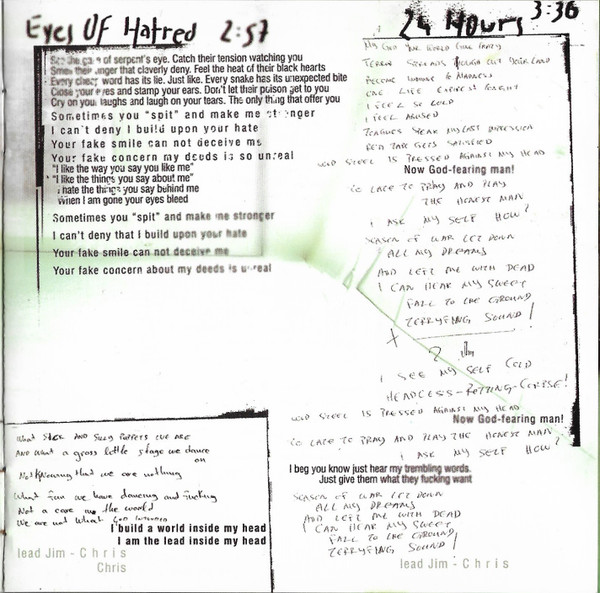 Eyes Of Hatred 2:57
of serpent's eye. Catch their tension watching you
anger that claverly deny. Feel the heat of their black hearts
Every word has its lie. Just like. Every snake has its unexpected bite
Close your eyes and stamp your ears. Don't let their poison get to you
Cry on you, laughs and laugh on your tears. The only thing that offer you
Sometimes you "spit" and make me stronger
I can't deny I build upon your hate
Your fake smile can not deceive me
Your fake concern my deeds is so unreal
"I like the way you say you like me"
"I like the things you say about me"
I hate the things you say behind me
When I am gone your eyes bleed
Sometimes you "spit" and make me stronger
I can't deny that I build upon your hate
Your fake smile can not deceive me
Your fake concern about my deeds is unreal
What sick and silly puppets we are
And what a gross little stage we dance
on
Not knowing that we are nothing
What fun we have dancing and fucking
Not a care in the world
We are not what
I build a world inside my head
I am the lead inside my head
lead Jim - Chris
Chris
24 Hours 3:36
My God your world gone crazy
Become immune to madness
One life
I feel so cold
I feel abused
steel is pressed against my head
Now God-fearing man!
late to pray and play
the honest man
I ask my self how?
Season of war let down
all my dreams
And left me with dead
I can hear my sweet
fall to the ground
terryfing sound!
I see my self cold
headless-rotting-corpse!
steel is pressed against my head
Now God-fearing man!
late to pray and play the honest man
I ask my self how?
I beg you know just hear my trembling words.
Just give them what they fucking want
Season of war let down
all my dreams
And left me with dead
I can hear my sweet
fall to the ground
terryfing sound!
lead Jim - Chris